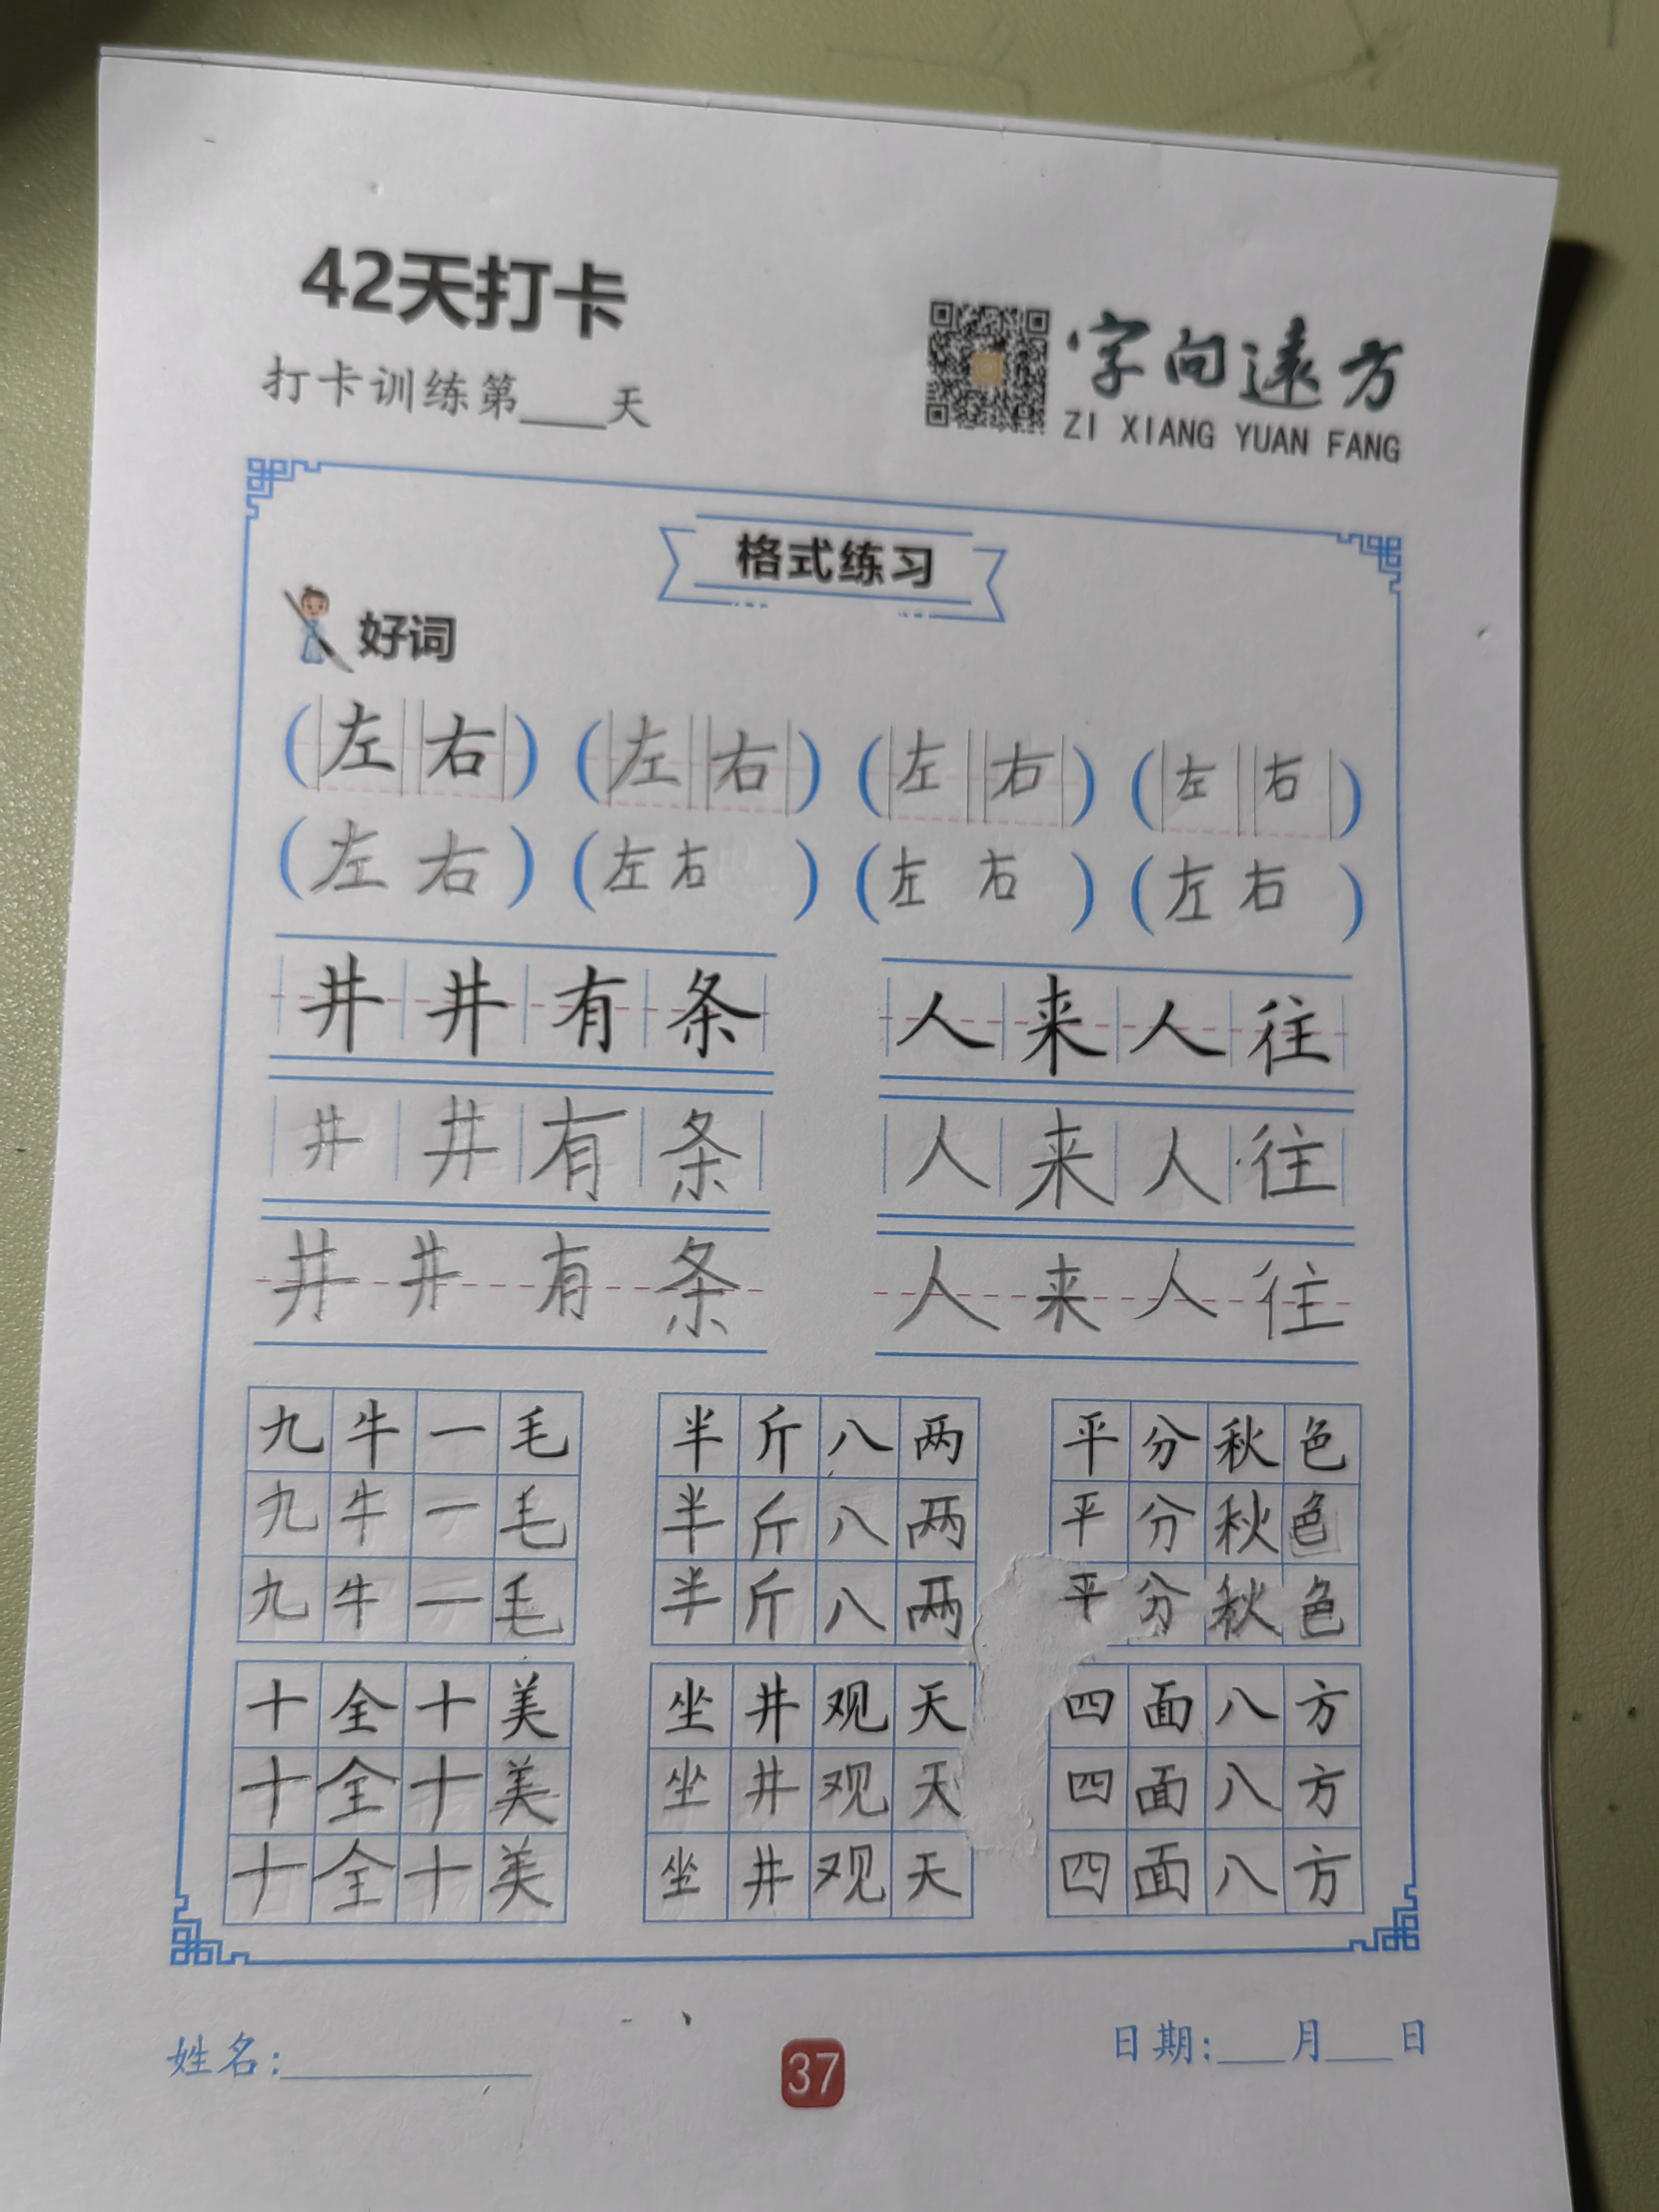 42天打卡
打卡训练第____天
字向遠方
ZI XIANG YUAN FANG
格式练习
好词
(左右) (左右) (左右) (左右)
(左右) (左右) (左右) (左右)
井井有条 人来人往
井井有条 人来人往
井井有条 人来人往
九牛一毛 半斤八两 平分秋色
九牛一毛 半斤八两 平分秋色
九牛一毛 半斤八两 平分秋色
十全十美 坐井观天 四面八方
十全十美 坐井观天 四面八方
十全十美 坐井观天 四面八方
姓名:__________ 37 日期:___月___日